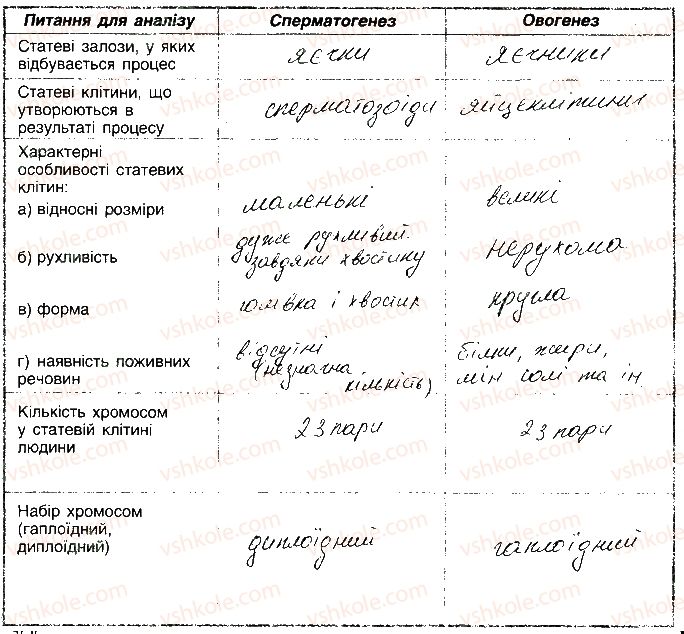 Питання для аналізу Сперматогенез Овогенез
Статеві залози, у яких
відбувається процес
яєчки яєчники
Статеві клітини, що
утворюються в
результаті процесу
сперматозоїди яйцеклітини
Характерні
особливості статевих
клітин:
а) відносні розміри
маленькі великі
б) рухливість
дуже рухливий
завдяки хвостику
нерухома
в) форма
голівка і хвостик
кругла
г) наявність поживних
речовин
відсутні
(незначна
кількість)
білки, жири,
мін солі та ін
Кількість хромосом
у статевій клітині
людини
23 пари 23 пари
Набір хромосом
(гаплоїдний,
диплоїдний)
диплоїдний гаплоїдний
vshkole.com